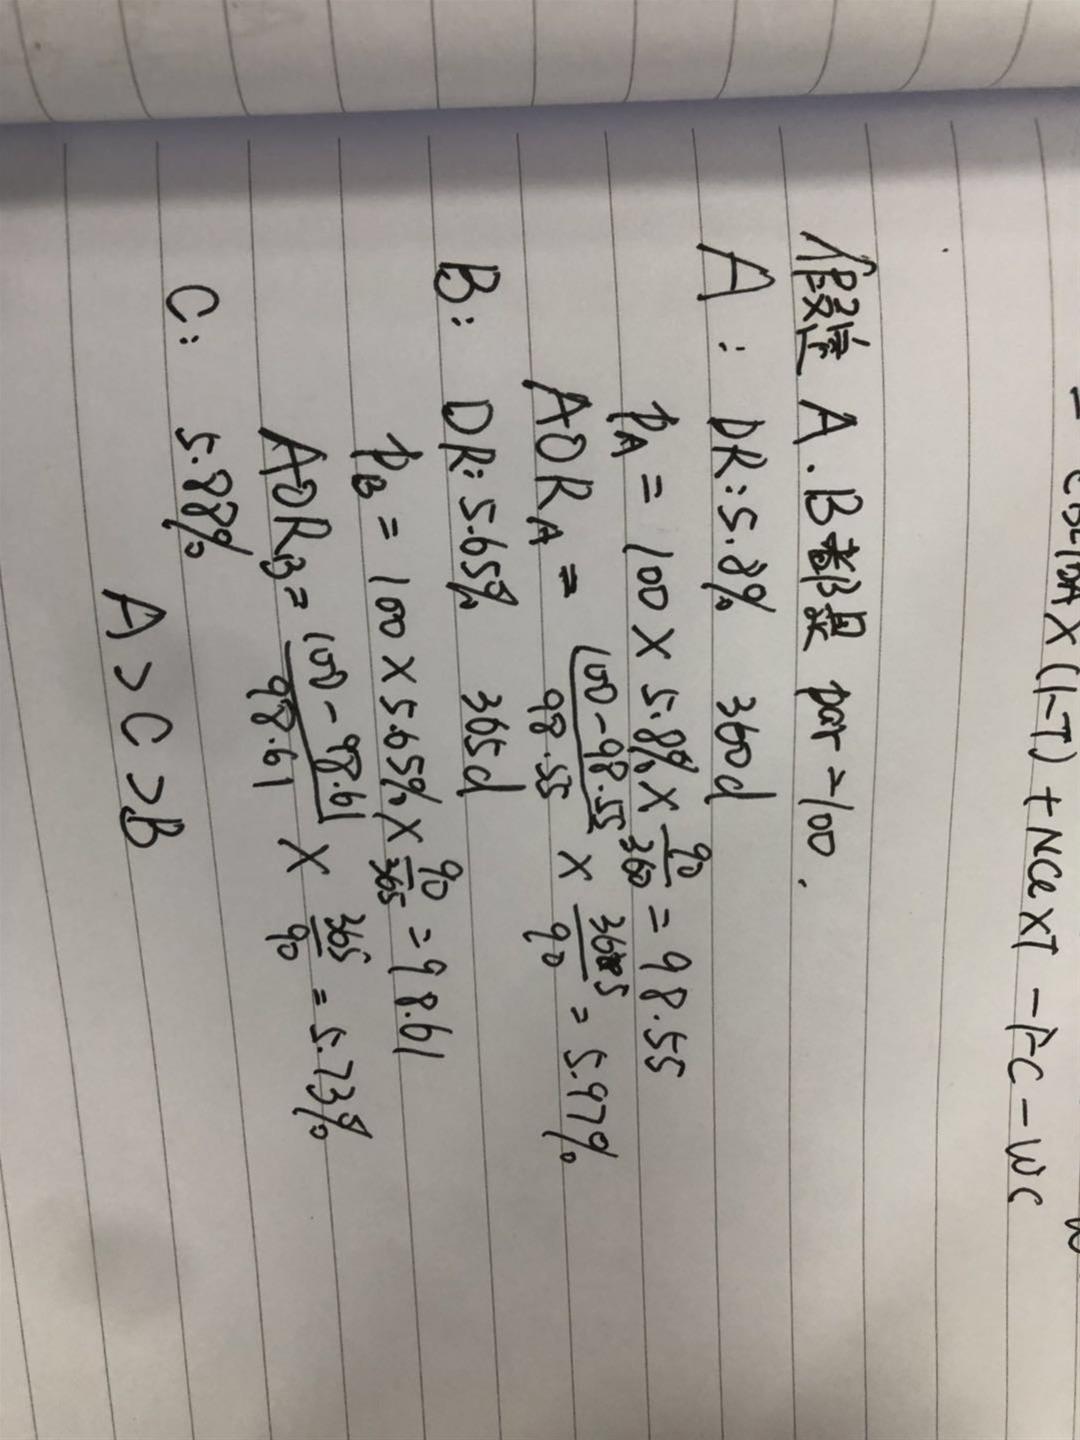 = EBITDA X (1-T) + NCC X T - FC - WC
假定 A.B都是 par = 100.
A: DR: 5.8% 360d
PA = 100 X 5.8% X 90/360 = 98.55
AORA = (100 - 98.55)/98.55 X 365/90 = 5.97%
B: DR: 5.65% 365d
PB = 100 X 5.65% X 90/365 = 98.61
AORB = (100 - 98.61)/98.61 X 365/90 = 5.73%
C: 5.88%
A > C > B